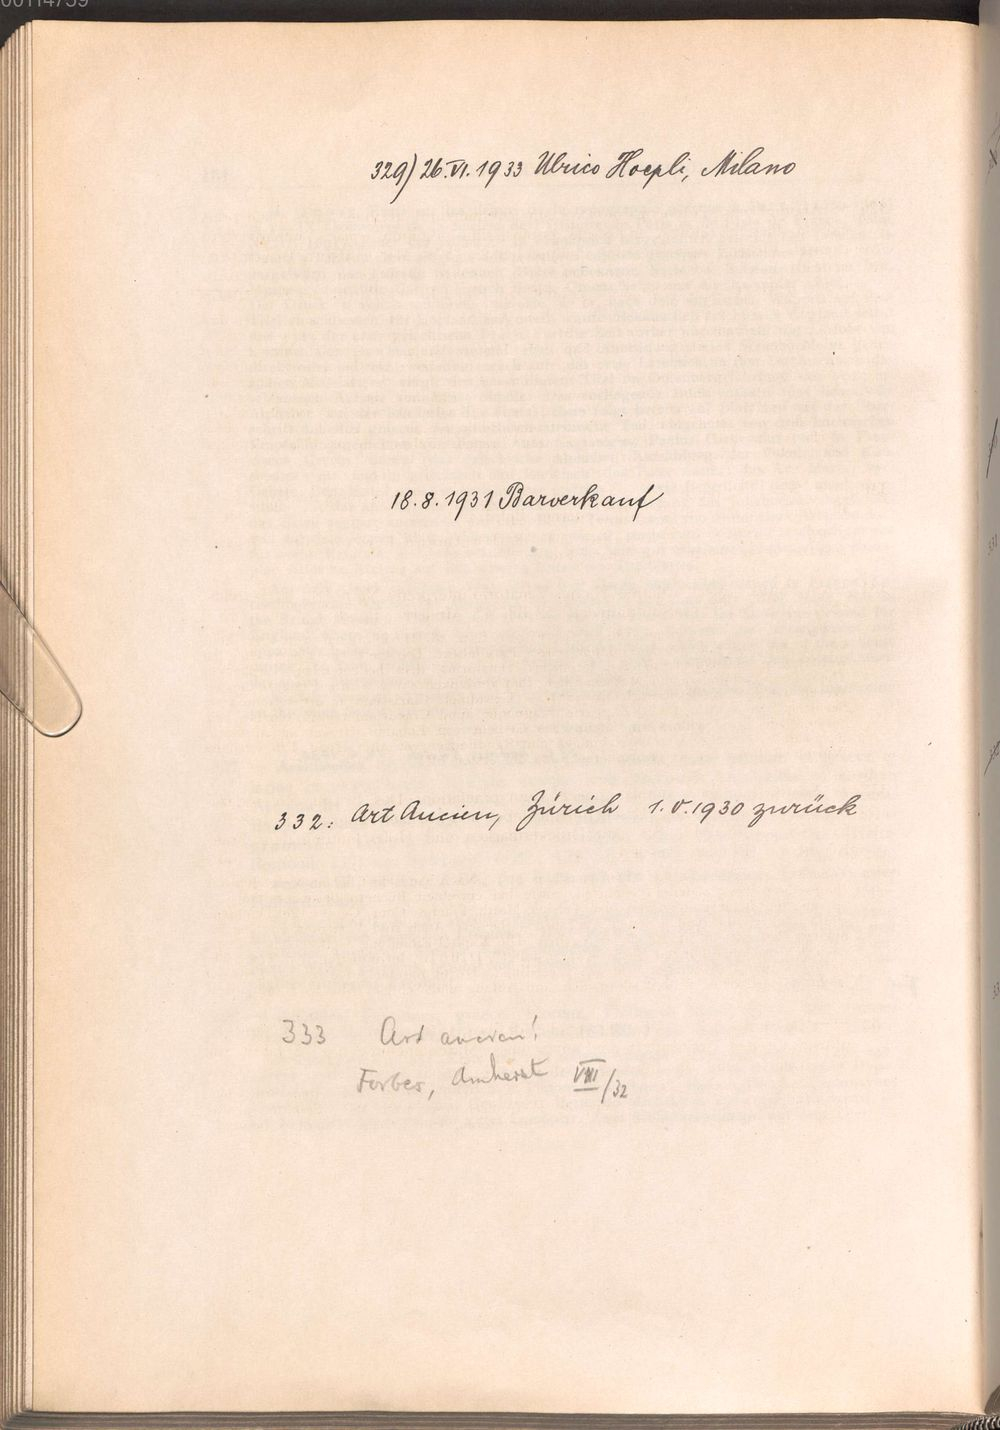 329) 26.VI.1933 Ulrico Hoepli, Milano
18.8.1931 Barverkauf
332: Art Ancien, Zürich 1.V.1930 zurück
333 Art ancien!
Forbes, Amherst VIII/32